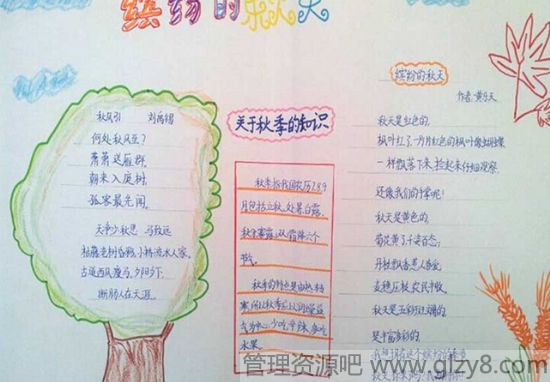 缤纷的秋天
秋风引 刘禹锡
何处秋风至?
萧萧送雁群
朝来入庭树,
孤客最先闻。
天净沙秋思 马致远
枯藤老树昏鸦,小桥流水人家,
古道西风瘦马,夕阳西下,
断肠人在天涯。
关于秋季的知识
秋季指我国农历7.8.9
月包括立秋、处暑、白露、
秋分、寒露、霜降六个
节气。
秋季的特点是由热转
水果
缤纷的秋天
作者:黄力天
秋天是红色的
枫叶红了,一片片红色的枫叶像蝴蝶
一样飘落下来,捡起来仔细观察,
还像我们的手掌呢!
秋天是黄色的
菊花黄了千姿百态,
丹桂飘香惹人喜爱,
麦穗点头农民丰收,
秋天是五彩斑斓的
是丰富多彩的
管理资源吧 www.glzy8.com